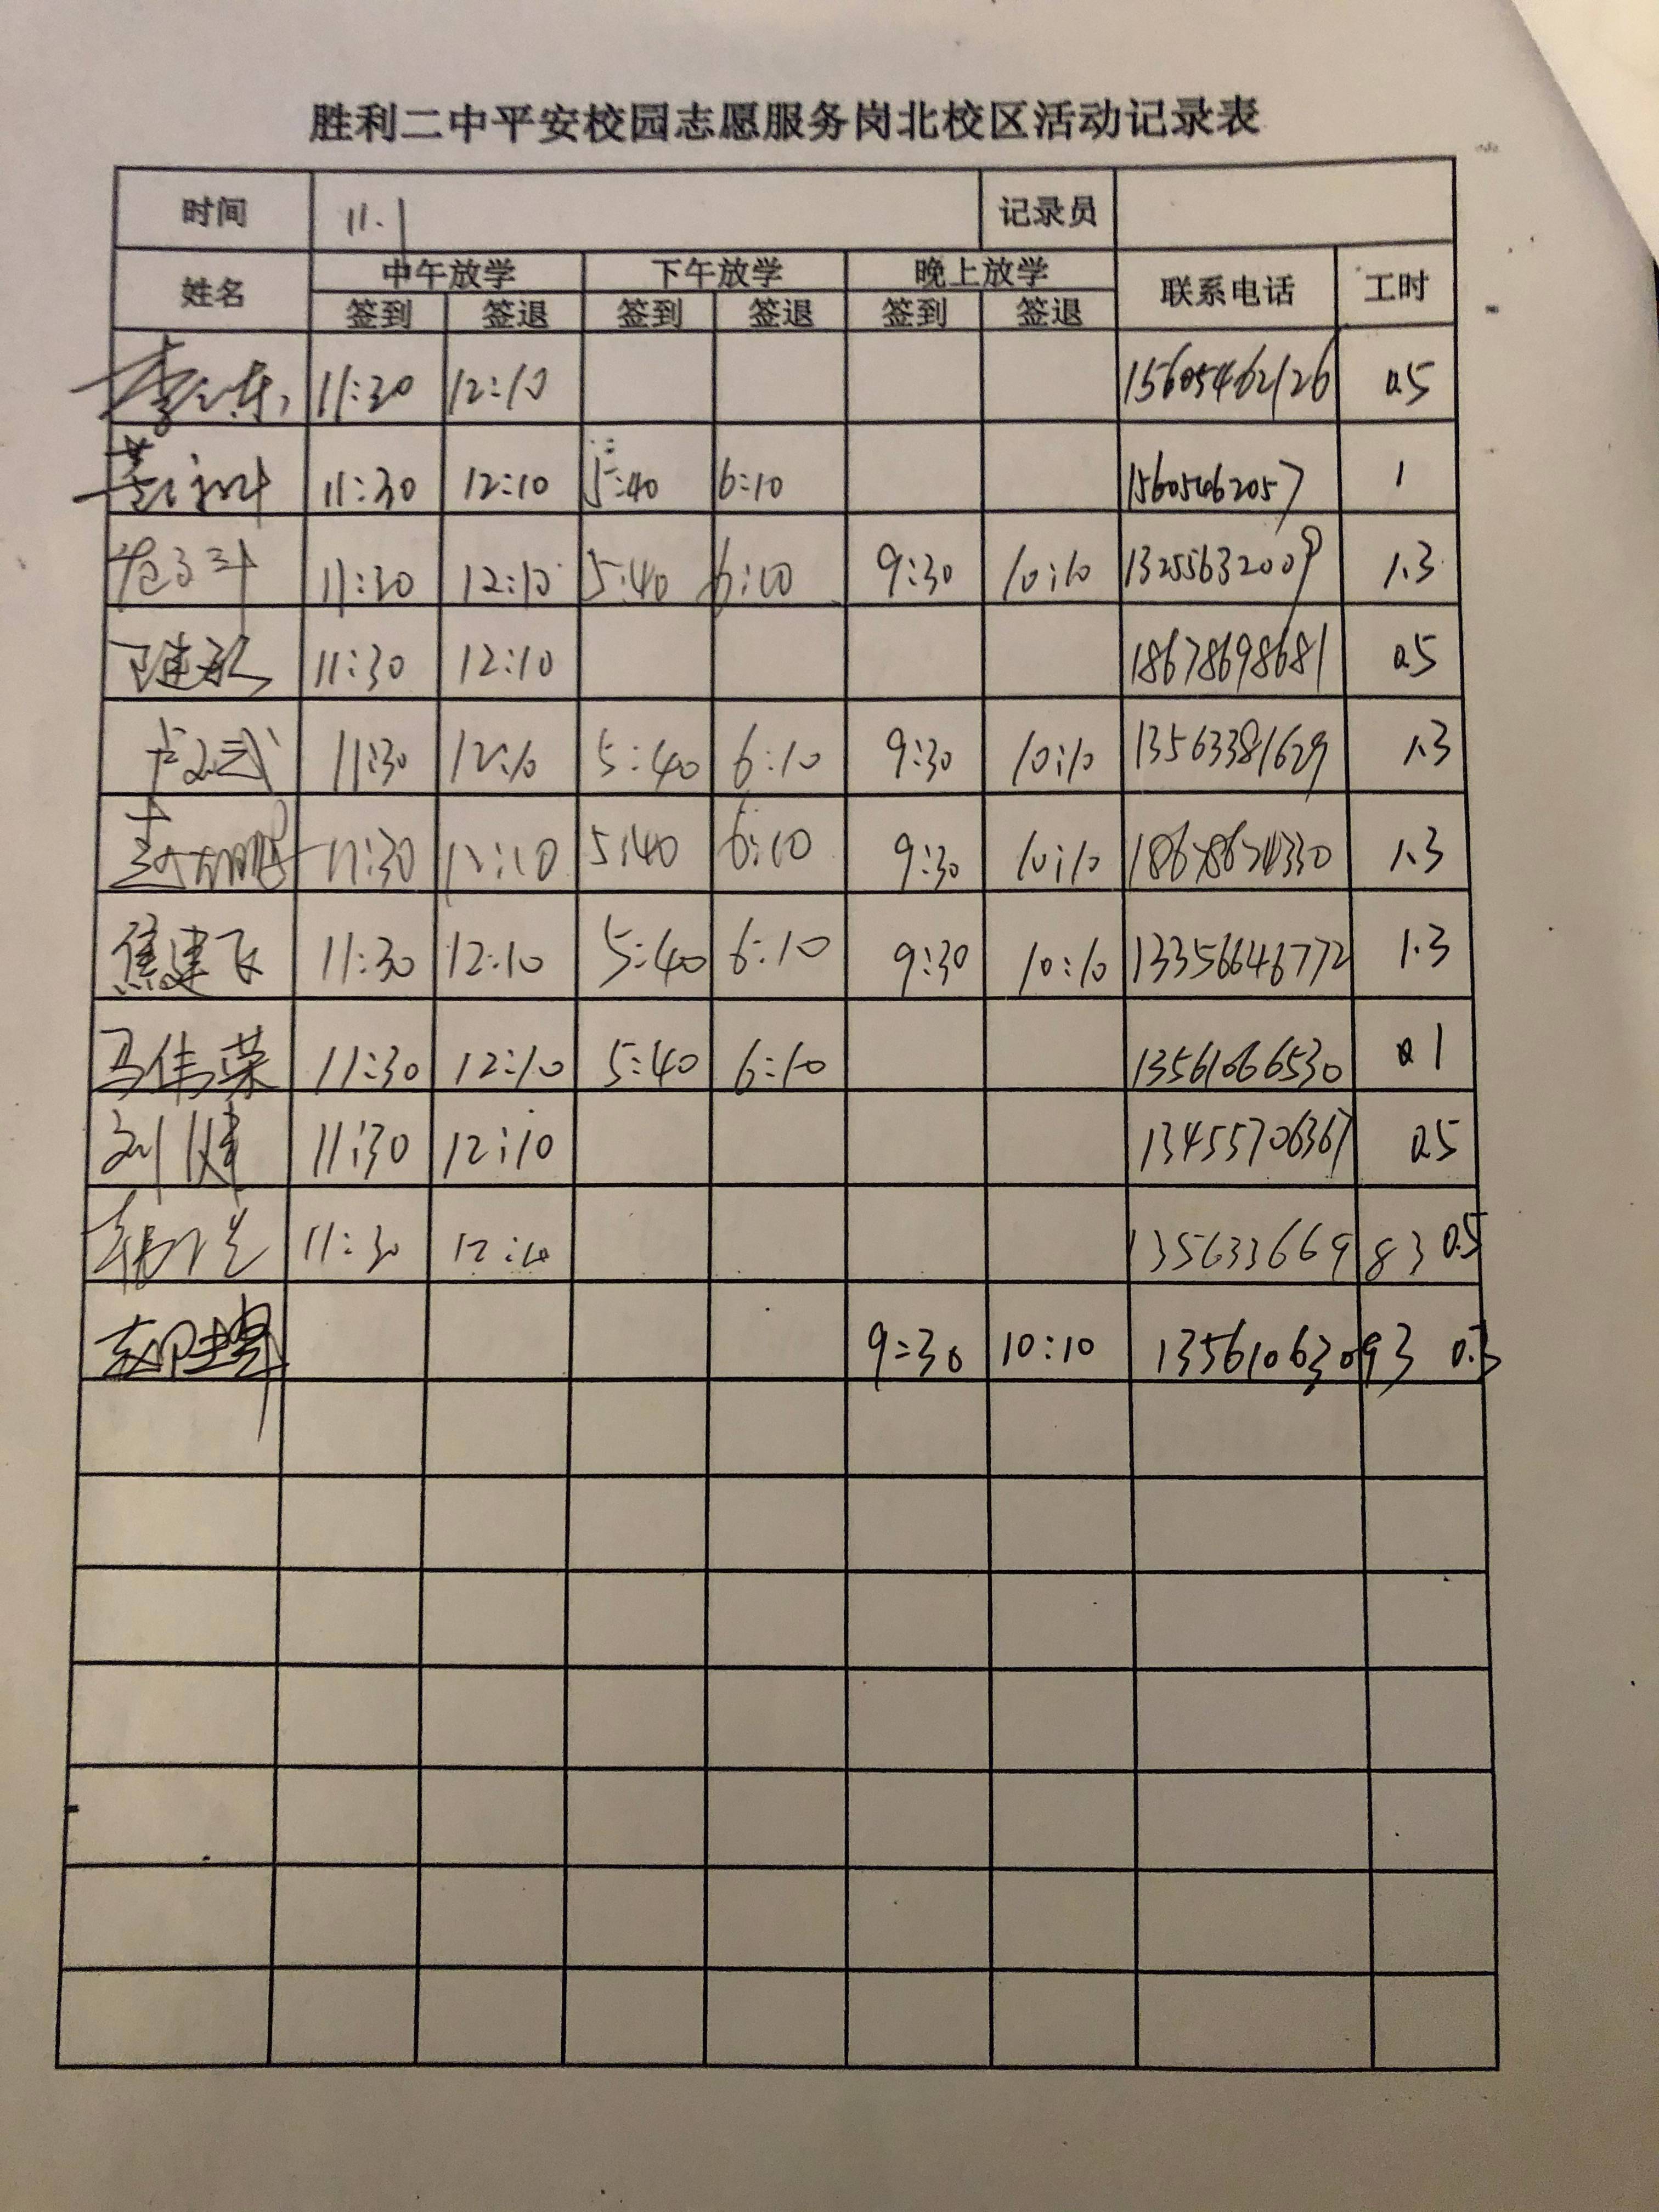 胜利二中平安校园志愿服务岗北校区活动记录表
时间 11.1 记录员
姓名 中午放学 下午放学 晚上放学 联系电话 工时
签到 签退 签到 签退 签到 签退
11:30 12:10 15605462126 0.5
11:30 12:10 5:40 6:10 15605462057 1
11:30 12:10 5:40 6:10 9:30 10:10 13255632009 1.3
11:30 12:10 18678698681 0.5
11:30 12:10 5:40 6:10 9:30 10:10 13563381629 1.3
11:30 12:10 5:40 6:10 9:30 10:10 1.3
焦建飞 11:30 12:10 5:40 6:10 9:30 10:10 13356646772 1.3
马伟荣 11:30 12:10 5:40 6:10 13561066530 1
刘健 11:30 12:10 13455706367 0.5
11:30 12:10 13563366983 0.5
9:30 10:10 13561063093 0.3